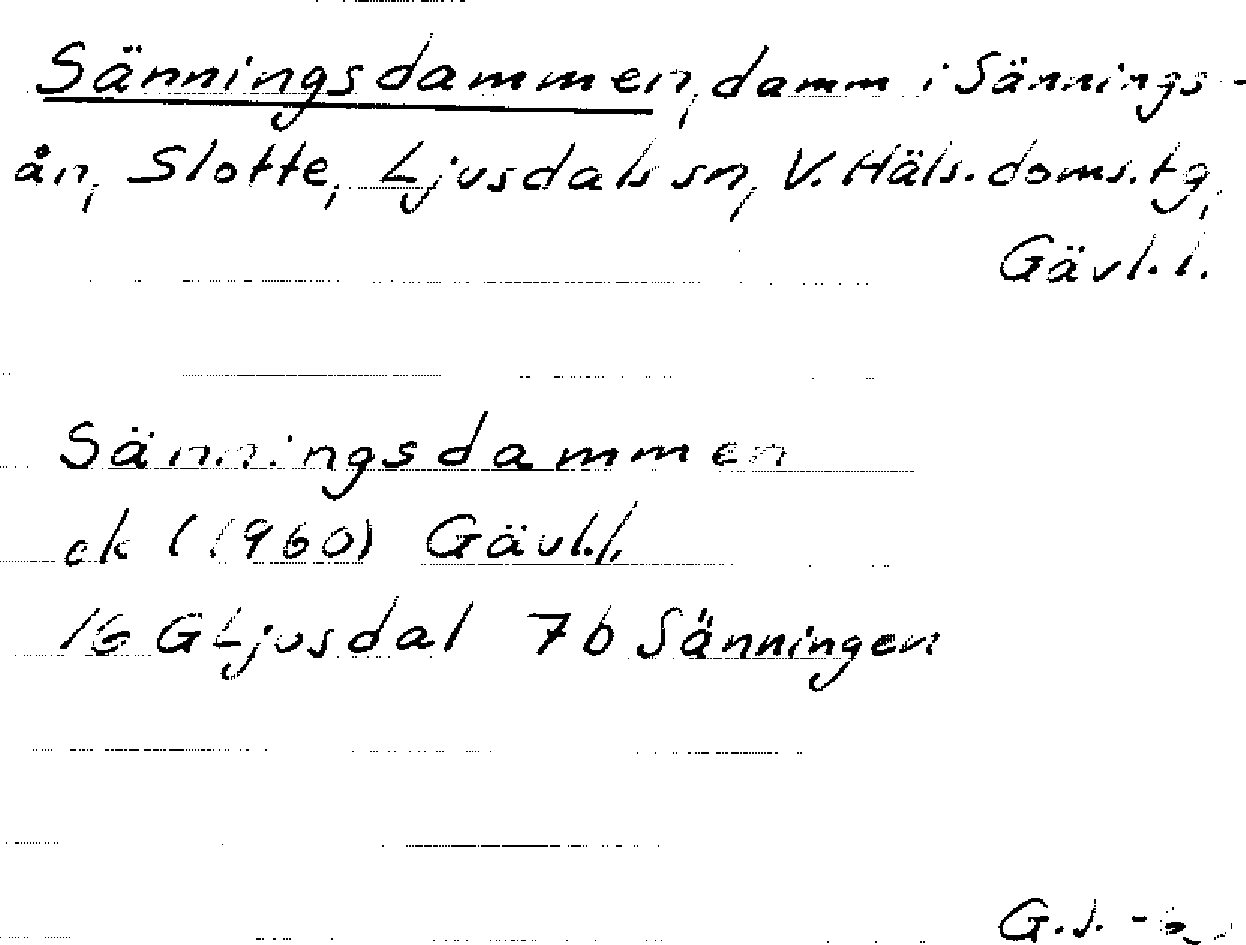 Sänningsdammen, damm i Sännings-
ån, Slotte, Ljusdals sn, V. Häls. doms. tg,
Gävl. l.
Sänningsdammen
ek (1960) Gävl. l.
16 G Ljusdal 7b Sänningen
G.J.